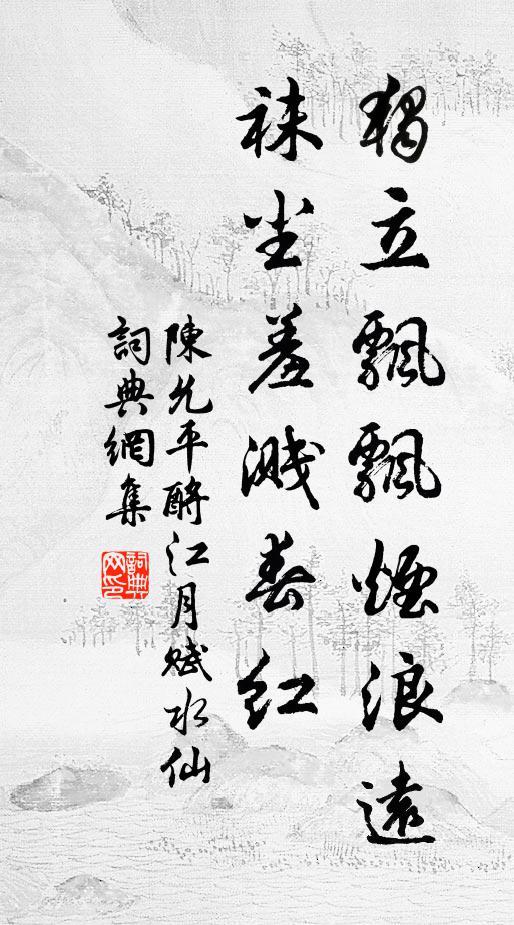 獨立飄飄煙浪遠
袜塵羞濺春紅
陳允平酹江月賦水仙
詞典網集
詞典网印